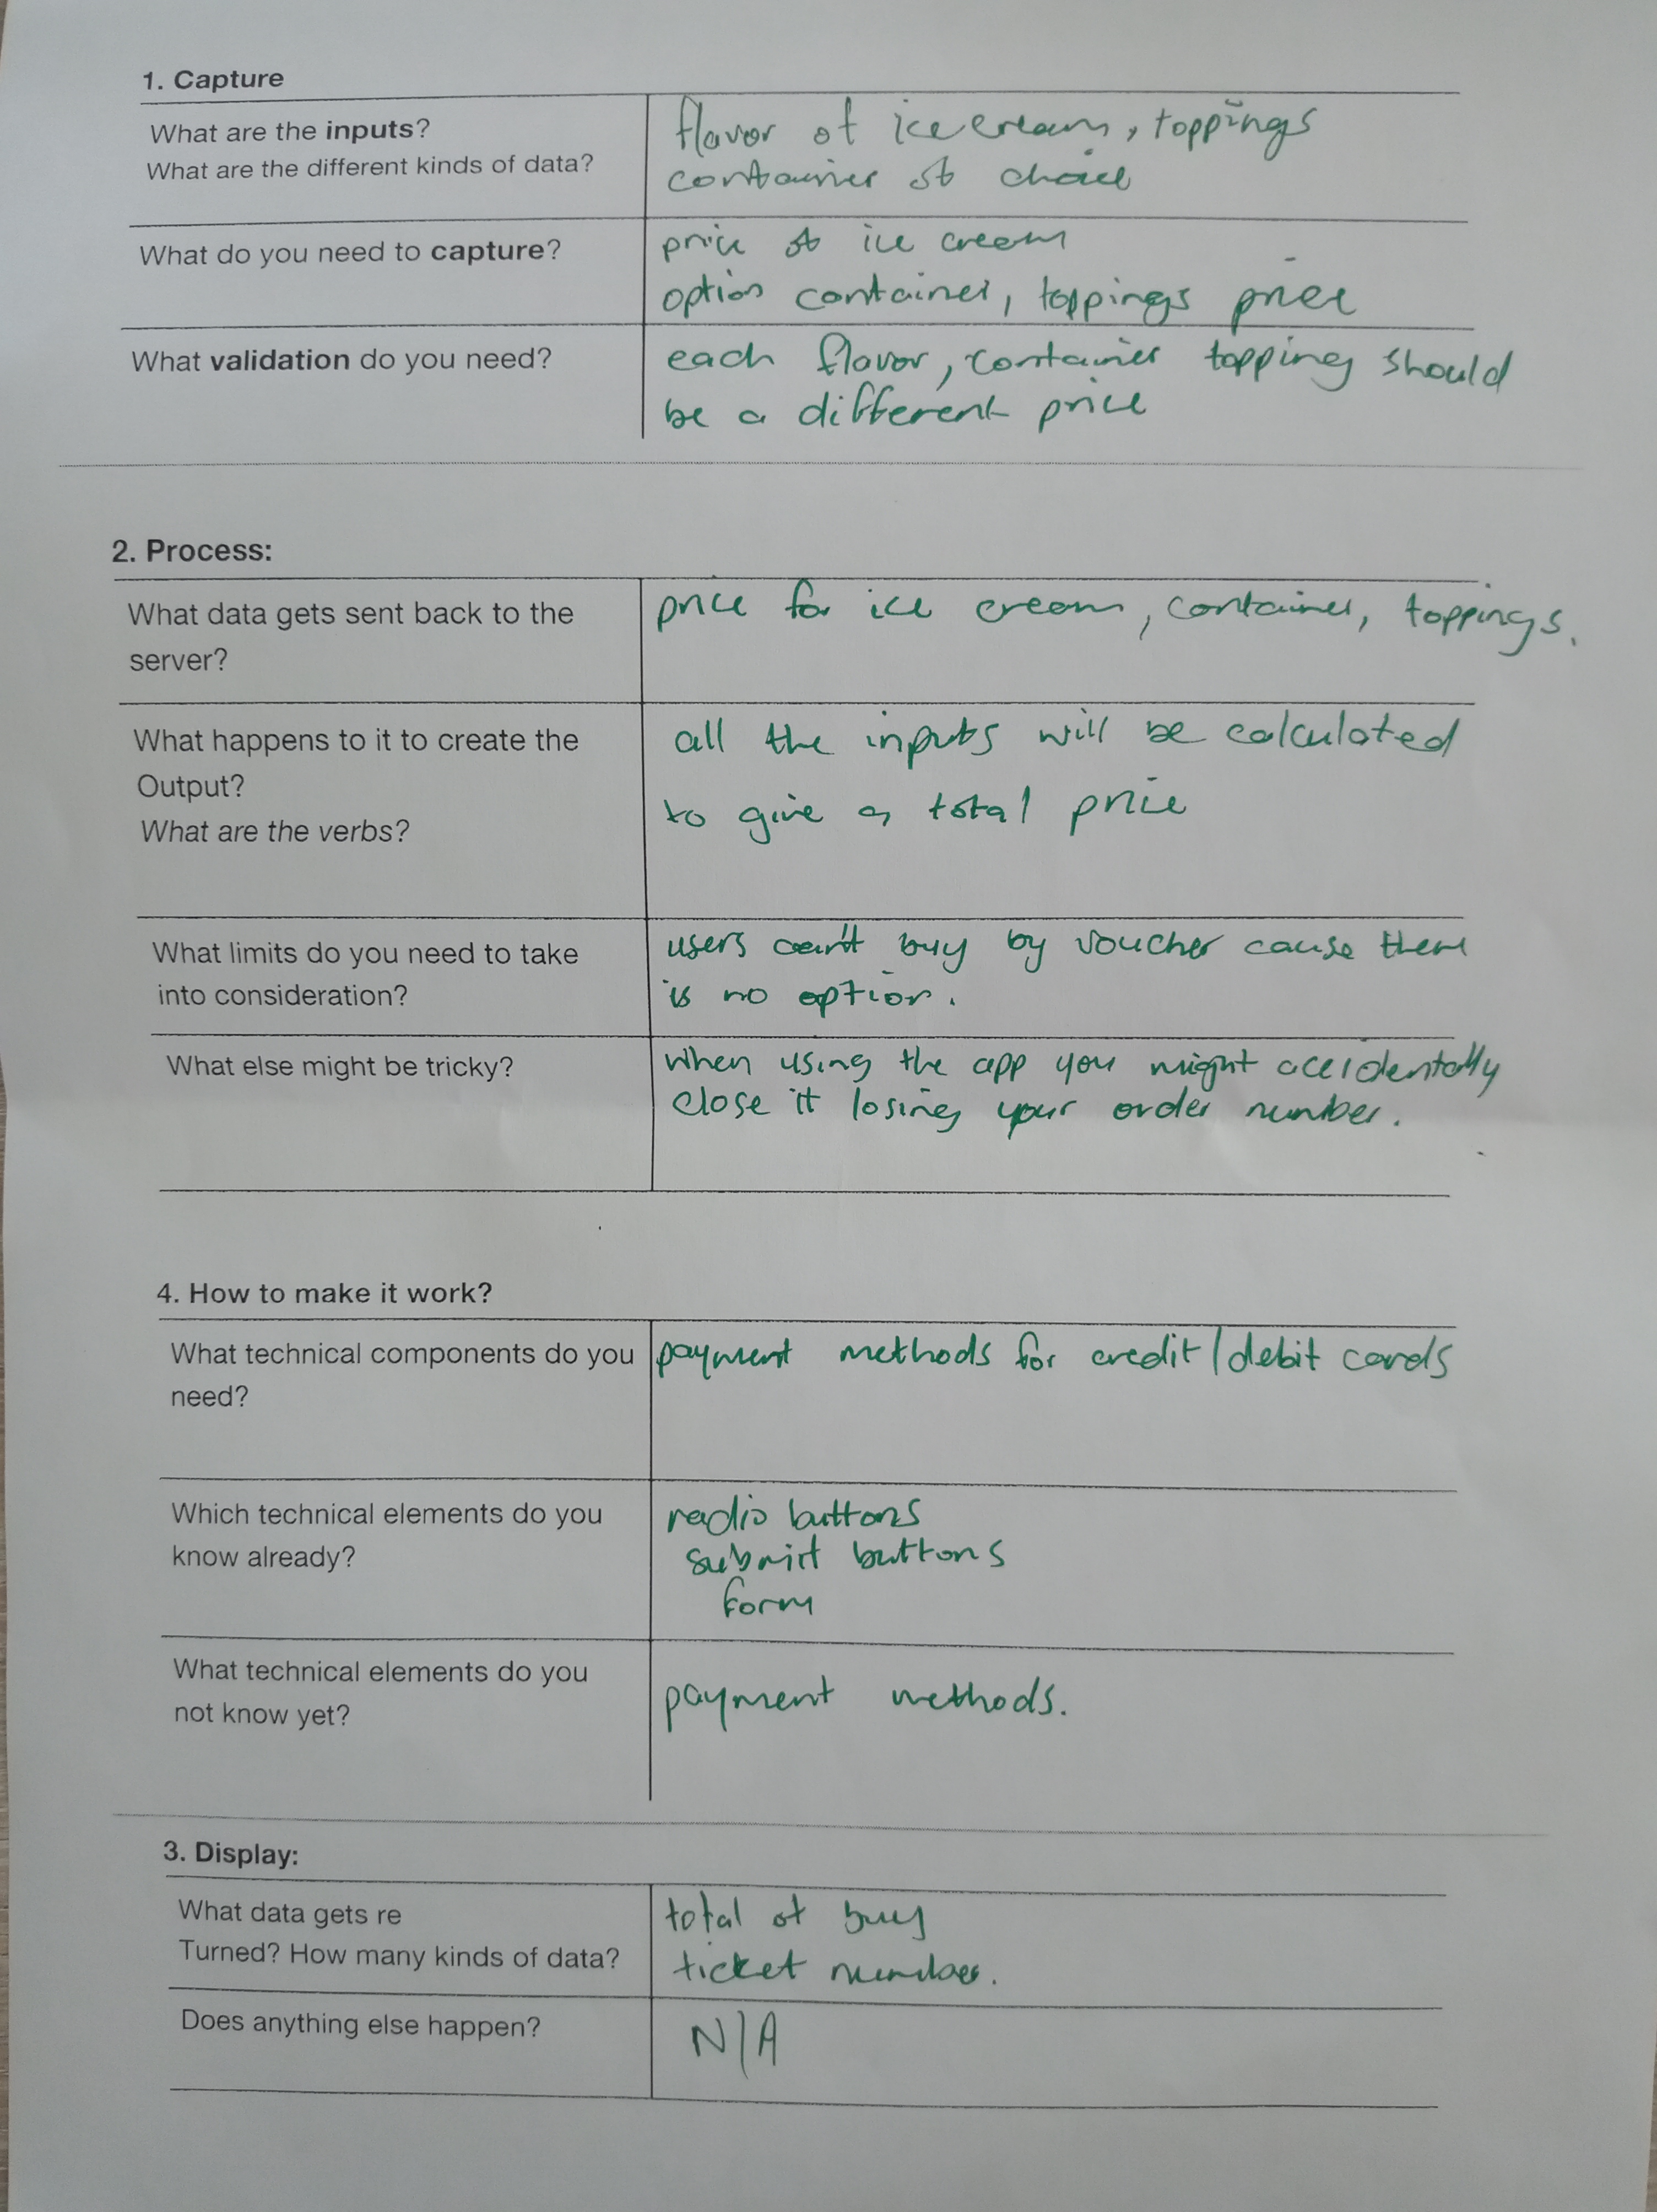 1. Capture
What are the inputs?
What are the different kinds of data?
flavor of ice cream, toppings
container of choice
What do you need to capture?
price of ice cream
option container, toppings price
What validation do you need?
each flavor, container topping should
be a different price
2. Process:
What data gets sent back to the
server?
price for ice cream, container, toppings.
What happens to it to create the
Output?
What are the verbs?
all the inputs will be calculated
to give a total price
What limits do you need to take
into consideration?
users can't buy by voucher cause there
is no option.
What else might be tricky?
when using the app you might accidentally
close it losing your order number.
4. How to make it work?
What technical components do you
need?
payment methods for credit/debit cards
Which technical elements do you
know already?
radio buttons
submit buttons
form
What technical elements do you
not know yet?
payment methods.
3. Display:
What data gets re
Turned? How many kinds of data?
total of buy
ticket number.
Does anything else happen?
N/A